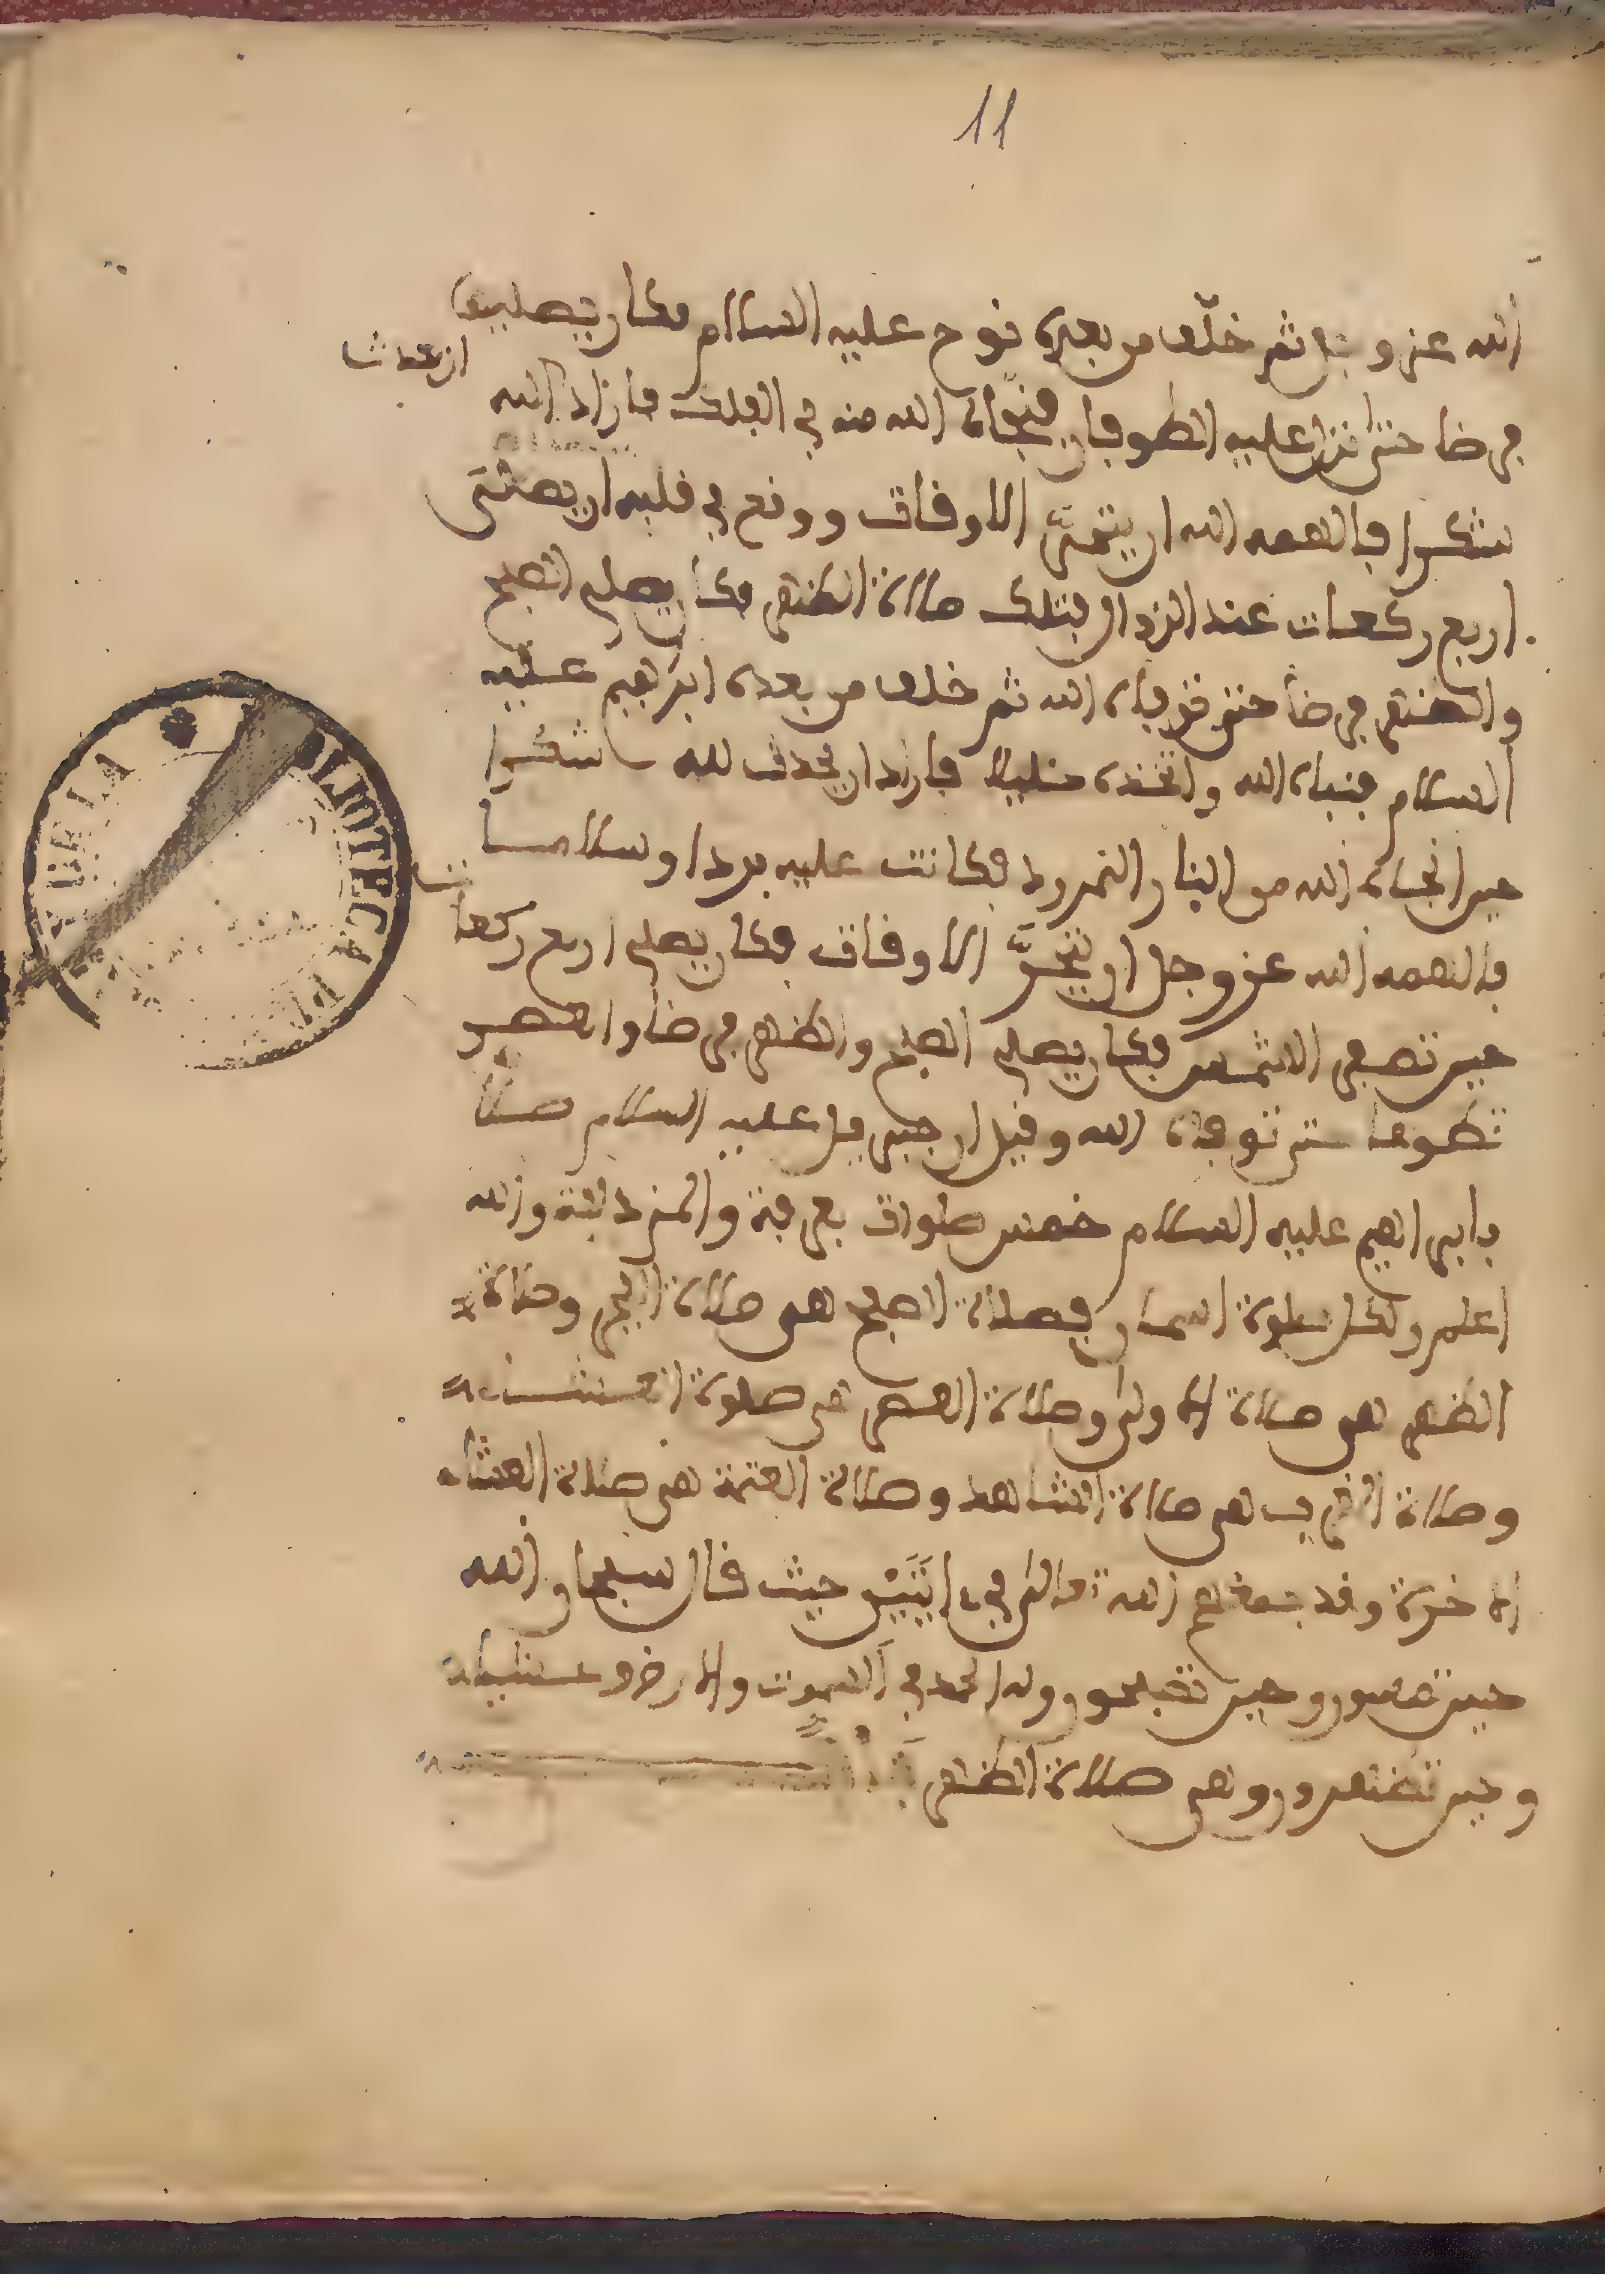 11
الله عز وجل ثم خلف من بعده نوح عليه السلام فكان يصليها
فرضا حتى نزل عليه الطوفان فنجاه الله منه في الفلك فاراد الله
شكرا فالهمه الله ان يتحرى الاوقات ووقع في قلبه ان يصلى
اربع ركعات عند الزوال فتلك صلاة الظهر فكان يصلي الصبح
والظهر فرضا حتى توفاه الله ثم خلف من بعده ابرهيم عليه
السلام فنباه الله واتخذه خليلا فاراد ان يحدث لله شكرا
حين انجاه الله من النار النمرود فكانت عليه بردا وسلاما
فالهمه الله عز وجل ان يتحرى الاوقات فكان يصلي اربع ركعات
حين تصفر الشمس فكان يصلي الصبح والظهر فرضا والعصر
تطوعا حتى توفاه الله وقيل ان جبريل عليه السلام صلا
بابراهيم عليه السلام خمس صلوات بعرفة والمزدلفة والله
اعلم ولكل صلوة اسمان فصلاة الصبح هي صلاة الفجر وصلاة
الظهر هي صلاة الاولى وصلاة العصر هي صلوة العشى
وصلاة المغرب هي صلاة الشاهد وصلاة العتمة هي صلاة العشاء
الاخرة وقد جمعهم الله تعالى في ايتين حيث قال سبحان الله
حين تمسون وحين تصبحون وله الحمد في السموت والارض وعشيا
وحين تظهرون وهي صلاة الظهر